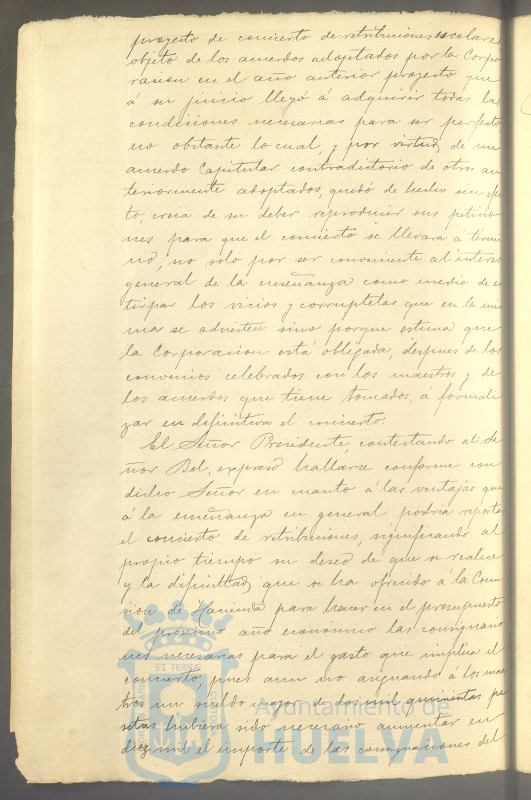 proyecto de concierto de retribuciones escolares
objeto de los acuerdos adoptados por la Corpo
racion en el año anterior proyecto que
á su juicio llegó á adquirir todas las
condiciones necesarias para ser perfecto
no obstante lo cual, y por virtud de un
acuerdo Capitular contradictorio de otros an
teriormente adoptados, quedó de hecho sin efec
to, creia de su deber reproducir sus peticio
nes para que el concierto se llevara á térmi
no, no solo por ser conveniente al interés
general de la enseñanza como medio de es
tirpar los vicios y corruptelas que en la mis
ma se advierten sino porque estima que
la Corporacion está obligada, despues de los
convenios celebrados con los maestros y de
los acuerdos que tiene tomados, á formali
zar en definitiva el concierto.
El Señor Presidente, contestando al Se
ñor Bel, expresó hallarse conforme con
dicho Señor en cuanto á las ventajas que
á la enseñanza en general podria reportar
el concierto de retribuciones, significando al
propio tiempo su deseo de que se realice
y la dificultad que se ha ofrecido á la Comi
sion de Hacienda para hacer en el presupuesto
del próximo año económico las consignacio
nes necesarias para el gasto que implica el
concierto, pues aun no asignando á los maes
tros un sueldo mayor de dos mil quinientas pe
setas hubiera sido necesario aumentar en
diez mil el importe de las consignaciones del
ET TERRA
Ayuntamiento de
HUELVA